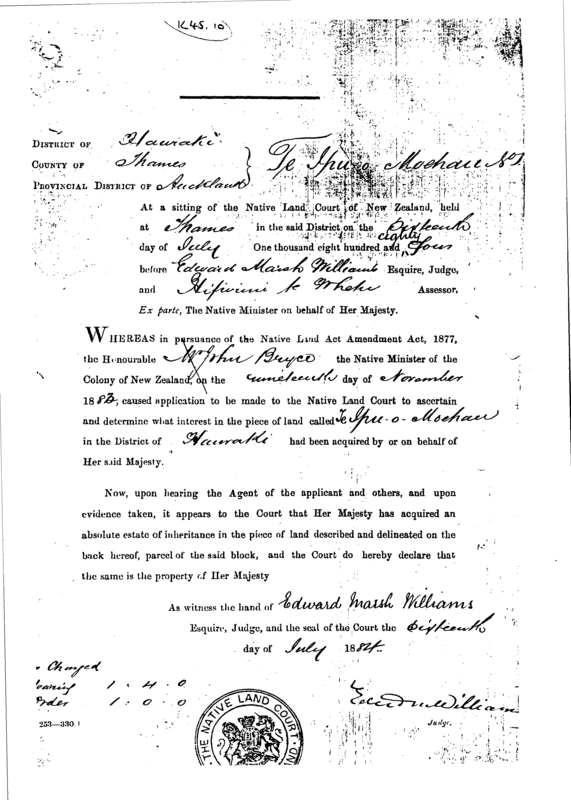 K45.10
DISTRICT OF Hauraki
COUNTY OF Thames
PROVINCIAL DISTRICT OF Auckland
Te Ipu-o-Moehau No 1
At a sitting of the Native Land Court of New Zealand, held
at Thames in the said District on the Sixteenth
day of July One thousand eight hundred and eighty four
before Edward Marsh Williams Esquire, Judge,
and Assessor,
Ex parte, The Native Minister on behalf of Her Majesty.
WHEREAS in pursuance of the Native Land Act Amendment Act, 1877,
the Honourable Mr John Bryce the Native Minister of the
Colony of New Zealand, on the nineteenth day of November
188 , caused application to be made to the Native Land Court to ascertain
and determine what interest in the piece of land called Te Ipu-o-Moehau
in the District of Hauraki had been acquired by or on behalf of
Her said Majesty.
Now, upon hearing the Agent of the applicant and others, and upon
evidence taken, it appears to the Court that Her Majesty has acquired an
absolute estate of inheritance in the piece of land described and delineated on the
back hereof, parcel of the said block, and the Court do hereby declare that
the same is the property of Her Majesty
As witness the hand of Edward Marsh Williams
Esquire, Judge, and the seal of the Court the Sixteenth
day of July 1884.
Charged
earing 1.4.0
rder 1.0.0
253—330.
THE NATIVE LAND COURT
Edw M Williams
Judge.